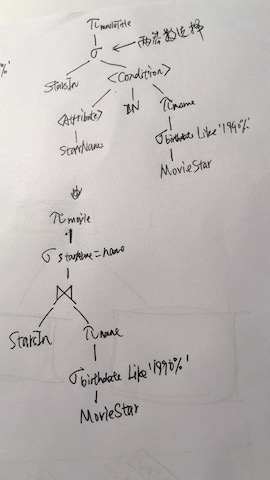 %'
π movieTitle
σ ← 两参数选择
StarsIn <Condition>
<Attribute> IN π name
StarName σ birthdate Like '1990%'
MovieStar
π movie
σ starName = name
⋈
StarsIn π name
σ birthdate Like '1990%'
MovieStar